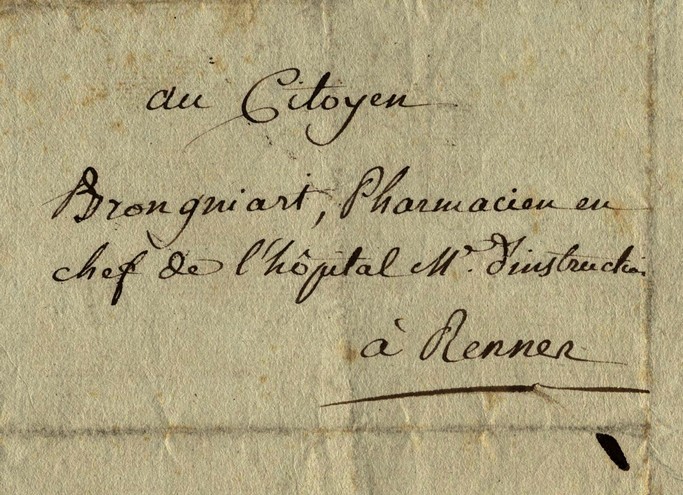 au Citoyen
Brongniart, Pharmacien en
chef de l'hôpital Mre. d'instruction
à Rennes